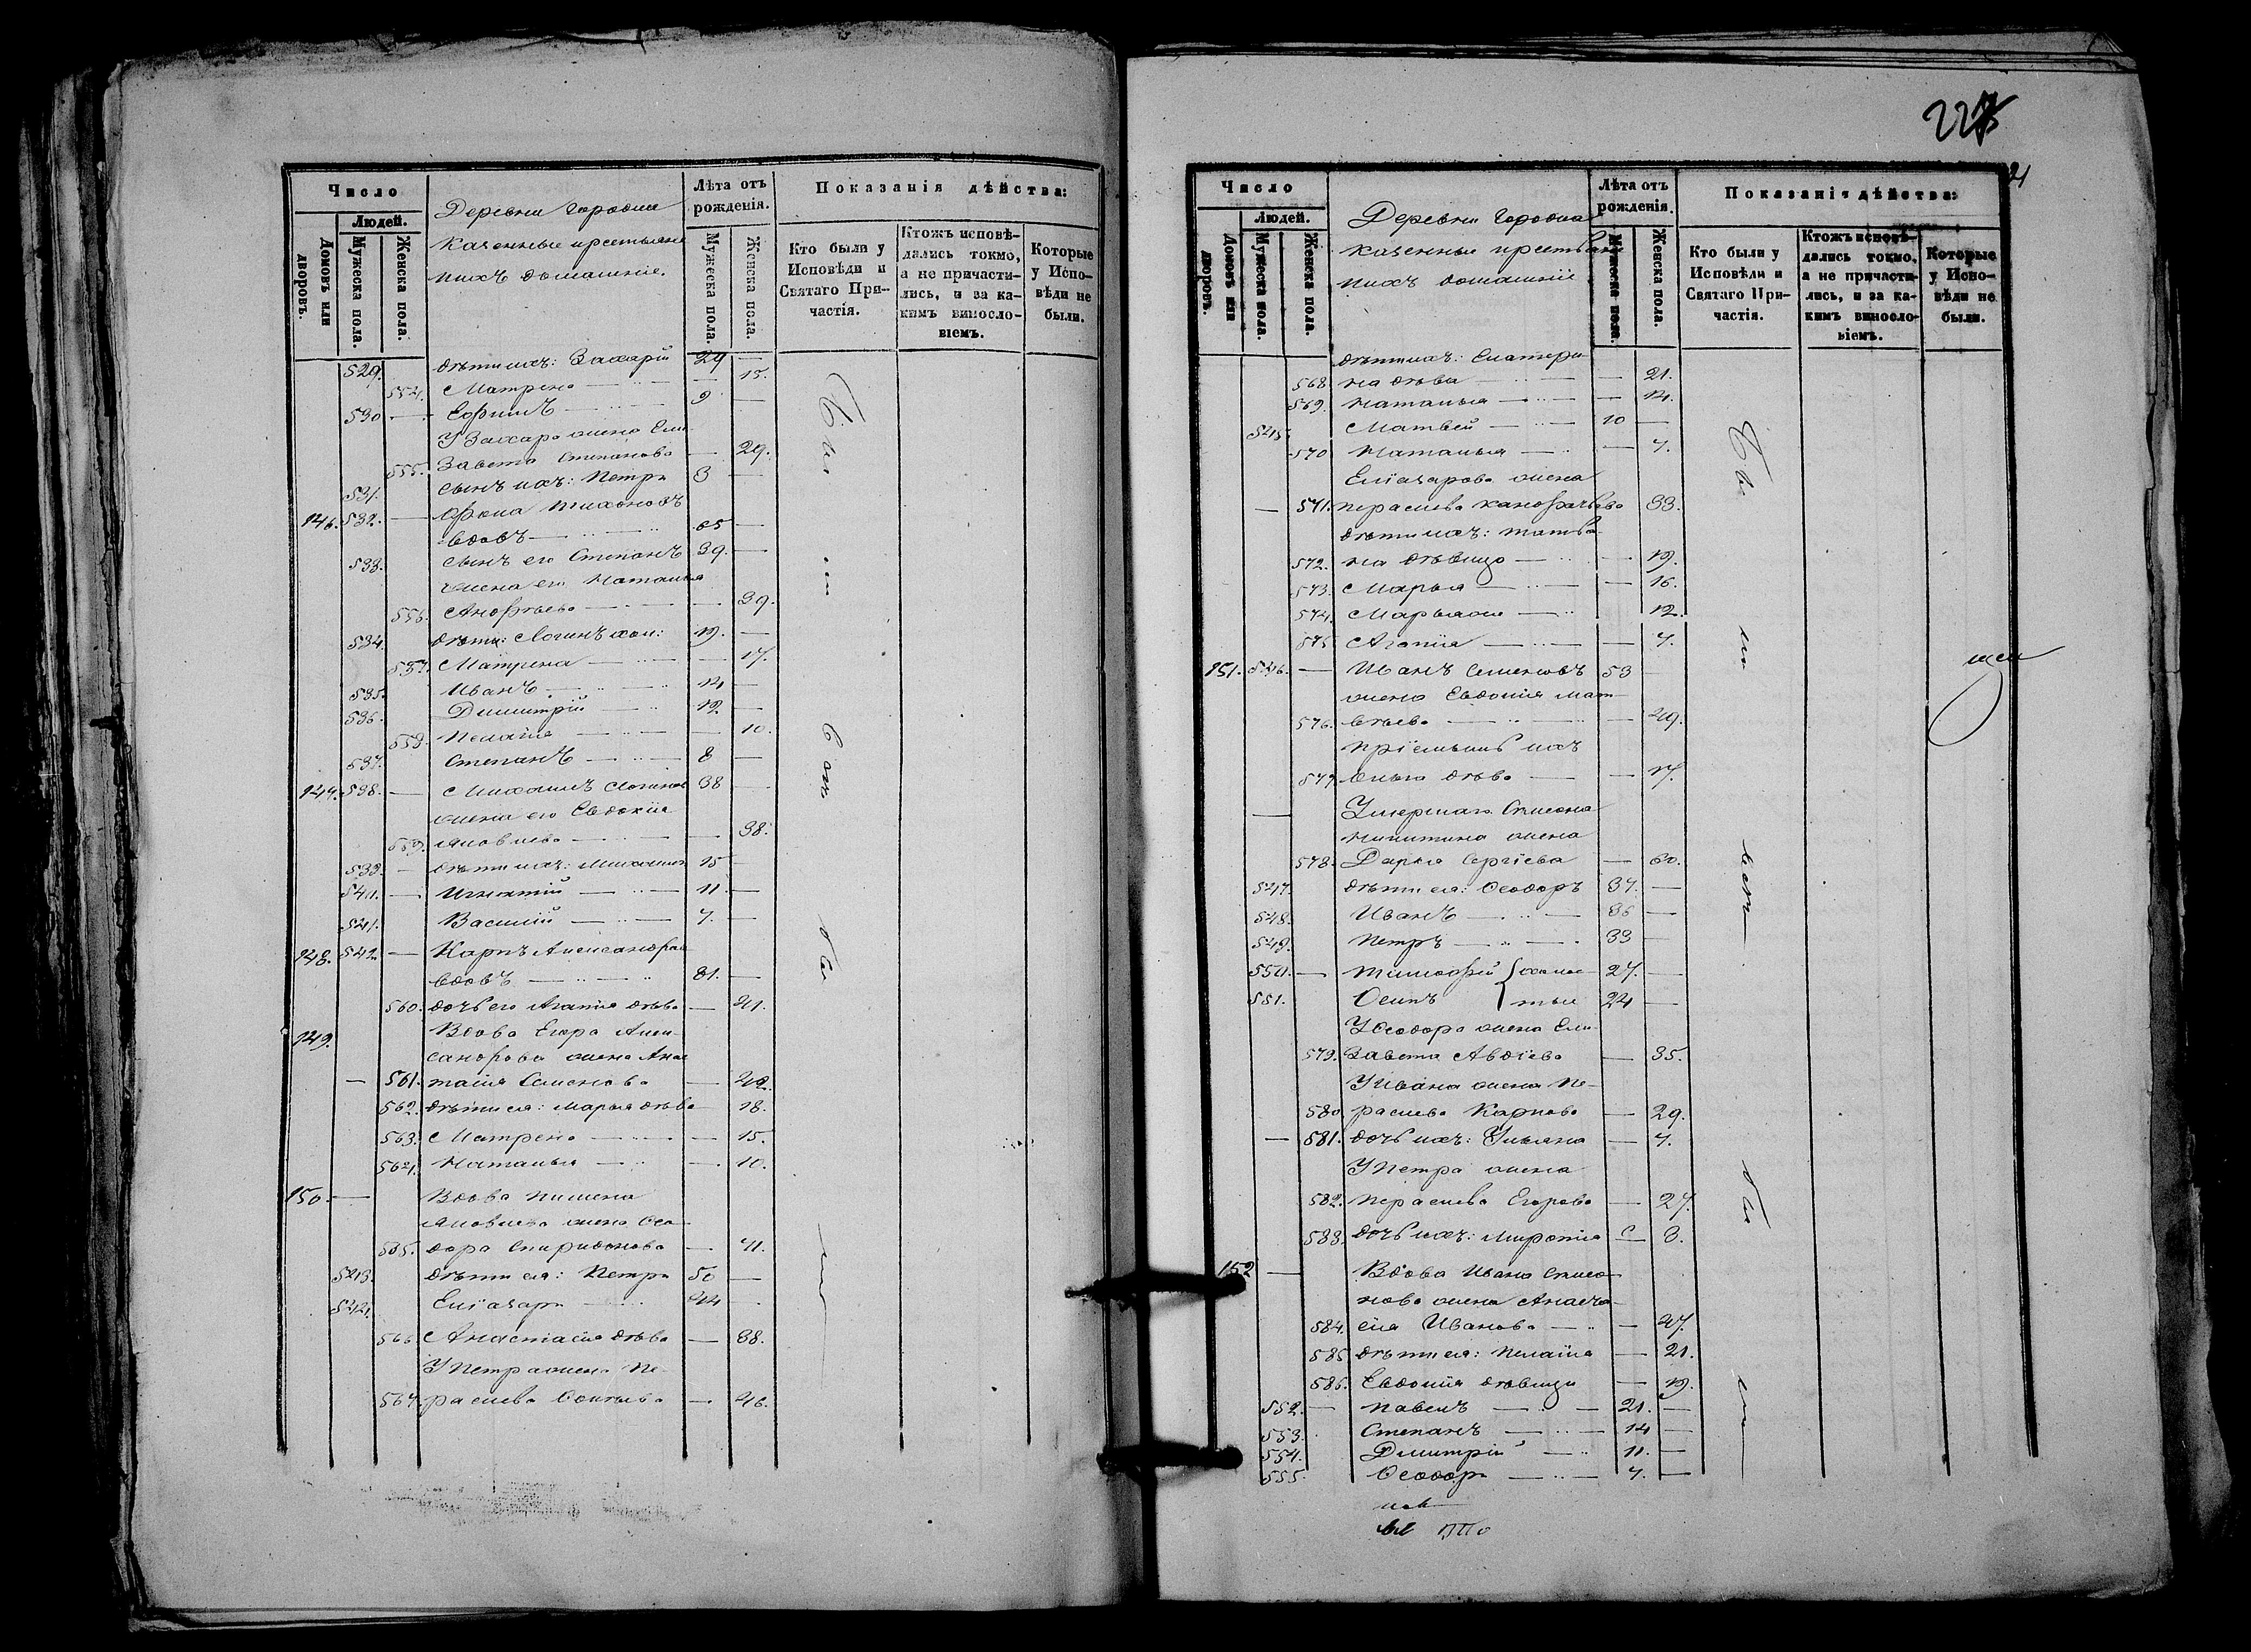 Число
Людей.
Домовъ или дворовъ.
Мужеска пола.
Женска пола.
Деревни Городни
казенные крестьяне
ихъ домашніе.
Лѣта отъ рожденія.
Мужеска пола.
Женска пола.
Показанія дѣйства:
Кто были у Исповѣди и Святаго Причастія.
Ктожъ исповѣдались токмо, а не причастились, и за какимъ винословіемъ.
Которые у Исповѣди не были.
529. дѣти ихъ: Захарій 29 —
554. Матрена — — 15.
530 — Ефимъ — 9 —
У Захара жена Ели
555. завета Степанова — 29.
531. сынъ ихъ: Петръ 3 —
146. 532. — Фома Тихоновъ
вдовъ — 65 —
533. сынъ его Степанъ 39. —
жена его Наталья
556. Анофріева — — 39.
534. дѣти: Логинъ хол: 19. —
557. Матрена — — 17.
535. Иванъ — 14 —
536. Димитрій — 12 —
558. Пелагія — — 10.
537. Степанъ — 8 —
147. 538. — Михаилъ Логинов 38 —
жена его Евдокія
559. Яковлева — — 38.
539. — дѣти ихъ: Михаилъ 15 —
540. — Игнатій — 11 —
541. Василій — 7. —
148. 542 — Карпъ Александров
вдовъ — 81. —
560. дочь его Агапія дѣва — 41.
149. Вдова Егора Алек-
сандрова жена Анас
— 561. тасія Семенова — 42.
562. дѣти ея: Марья дѣва — 18.
563. Матрена — — 15.
564. Наталья — — 10.
150. — Вдова Пимена
Яковлева жена Ѳео-
565. дора Спиридонова — 71.
543. дѣти ея: Петръ 50 —
544. Еліазаръ — 44 —
566 Анастасія дѣва — 38.
У Петра жена Пе-
567. раскева — 46.
Были
были
225
Число
Людей.
Домовъ или дворовъ.
Мужеска пола.
Женска пола.
Деревни Городни
казенные крестьян
ихъ домашніе
Лѣта отъ рожденія.
Мужеска пола.
Женска пола.
Показанія дѣйства:
Кто были у Исповѣди и Святаго Причастія.
Ктожъ исповѣдались токмо, а не причастились, и за какимъ винословіемъ.
Которые у Исповѣди не были.
дѣти ихъ: Екатери
568. на дѣва — — 21.
569. Наталья — — 14.
545. Матвей — 10 —
570 Наталья — — 7.
Еліазара жена
— 571. Параскева 33.
дѣти ихъ: Татья
572. на дѣвица — — 19.
573. Марья — — 16.
574. Марья — 12.
575 Агапія — — 7.
151. 546. — Иванъ Семеновъ 53 —
жена Евдокія Мат-
576. вѣева — — 49.
Пріемышъ ихъ
577. дѣва — — 17.
— Умершаго Симеона
Никитина жена
578. Дарья Сергіева — 60.
547. дѣти ея: Ѳеодоръ 37. —
548. Иванъ — 36 —
549. Петръ — 33 —
550. — Тимофей } холос- 27. —
551. Осипъ } тые 24 —
У Ѳеодора жена Ели-
579. завета Авдіева — 35.
У Ивана жена Пе-
580 раскева Карпова — 29.
— 581. дочь ихъ: Ульяна — 7.
У Петра жена
582. Пераскева Егорова — 27.
583. дочь ихъ: 3.
152 — Вдова Ивана Симео-
нова жена Анаста-
584. сія Иванова — — 47.
585 дѣти ея: Пелагія — 21.
586. Евдокія дѣвица — 19.
552. — Павелъ — 21. —
553. Степанъ — 14 —
554. Димитрій — 11. —
555. Ѳеодоръ — 7. —